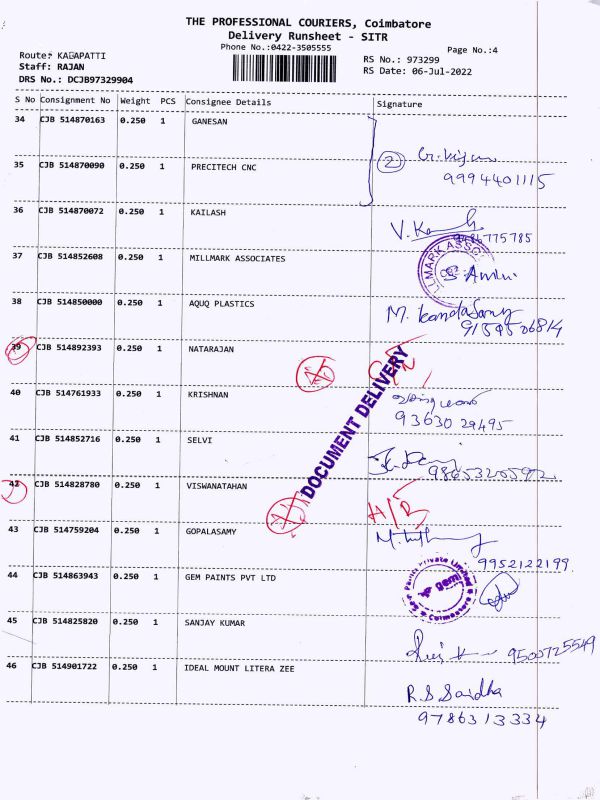 THE PROFESSIONAL COURIERS, Coimbatore
Delivery Runsheet - SITR
Phone No.:0422-3505555
Page No.:4
Route: KALAPATTI
Staff: RAJAN
DRS No.: DCJB97329904
RS No.: 973299
RS Date: 06-Jul-2022
S No Consignment No Weight PCS Consignee Details Signature
34 CJB 514870163 0.250 1 GANESAN
35 CJB 514870090 0.250 1 PRECITECH CNC 2
9994401115
36 CJB 514870072 0.250 1 KAILASH
9486775785
37 CJB 514852608 0.250 1 MILLMARK ASSOCIATES
38 CJB 514850000 0.250 1 AQUQ PLASTICS
M. kandaSamy
9159506814
39 CJB 514892393 0.250 1 NATARAJAN
DOCUMENT DELIVERY
40 CJB 514761933 0.250 1 KRISHNAN
93630 29495
41 CJB 514852716 0.250 1 SELVI
42 CJB 514828780 0.250 1 VISWANATAHAN
43 CJB 514759204 0.250 1 GOPALASAMY
9952122199
44 CJB 514863943 0.250 1 GEM PAINTS PVT LTD
gem Paints Private Limited
Coimbatore
45 CJB 514825820 0.250 1 SANJAY KUMAR
9500725549
46 CJB 514901722 0.250 1 IDEAL MOUNT LITERA ZEE
R.S Saidha
9786313334